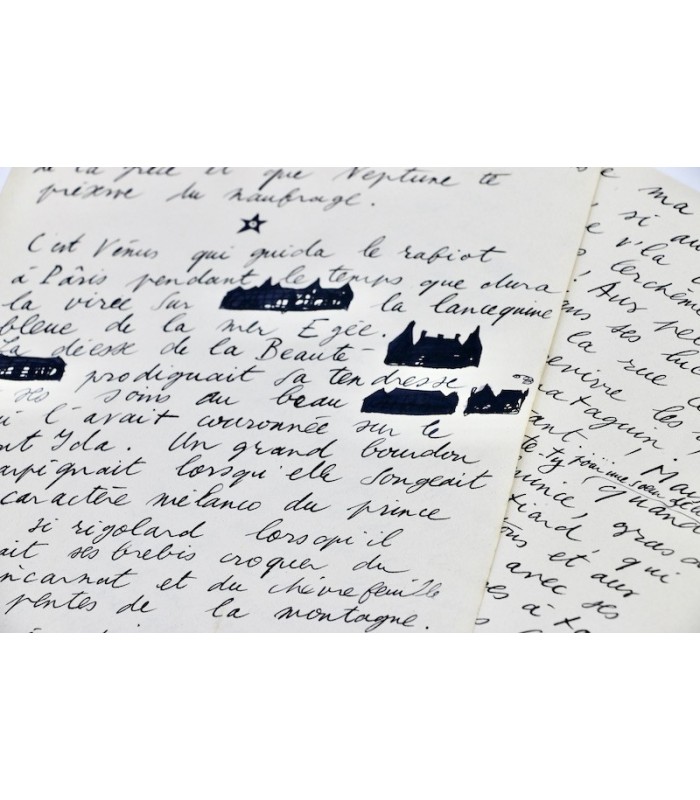 de la grèce et que Neptune te
préserve du naufrage.
C'est Vénus qui guida le rabiot
à Pâris pendant le temps que dura
la virée sur la lancequine
bleue de la mer Egée.
La déesse de la Beauté
prodiguait sa tendresse
ses soins au beau
l'avait couronnée sur le
nt Ida. Un grand bourdon
arpignait lorsqu'elle songeait
caractère mélanco du prince
si rigolard lorsqu'il
ait ses brebis croquer du
incarnat et du chèvrefeuille
pentes de la montagne.
ma
si au
v'la
Aux
ses
la rue
revivre les
ataquin.
tant, Ma
te-ty, pour une soeur
Quand
ince, gras
tiard, qui
tous et aux
avec ses
es à ta